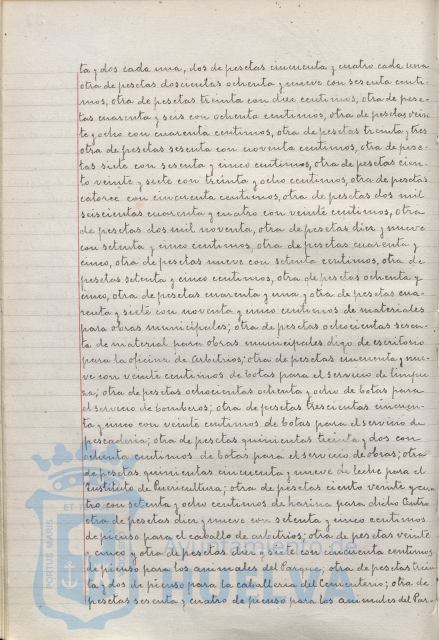 ta y dos cada una, dos de pesetas cincuenta y cuatro cada una
otra de pesetas doscientas ochenta y nueve con sesenta centi-
mos, otra de pesetas treinta con doce centimos, otra de pese-
tas cuarenta y seis con ochenta centimos, otra de pesetas vein
te y ocho con cuarenta centimos, otra de pesetas treinta y tres
otra de pesetas sesenta con noventa centimos, otra de pese-
tas siete con sesenta y cinco centimos, otra de pesetas cien-
to veinte y siete con treinta y ocho centimos, otra de pesetas
catorce con cincuenta centimos, otra de pesetas dos mil
seiscientas cuarenta y cuatro con veinte centimos, otra
de pesetas dos mil noventa, otra de pesetas diez y nueve
con setenta y cinco centimos, otra de pesetas cuarenta y
cinco, otra de pesetas nueve con setenta centimos, otra de
pesetas setenta y cinco centimos, otra de pesetas ochenta y
cinco, otra de pesetas cuarenta y una y otra de pesetas cua-
renta y siete con noventa y cinco centimos de materiales
para obras municipales; otra de pesetas ochocientas sesen-
ta de material para obras municipales digo de escritorio
para la oficina de Arbitrios; otra de pesetas cincuenta y nue-
ve con veinte centimos de botas para el servicio de limpie
za; otra de pesetas ochocientas ochenta y ocho de botas para
el servicio de bomberos; otra de pesetas trescientas cincuen-
ta y cinco con veinte centimos de botas para el servicio de
pescaderia; otra de pesetas quinientas treinta y dos con
ochenta centimos de botas para el servicio de obras; otra
de pesetas quinientas cincuenta y nueve de leche para el
Instituto de Puericultura; otra de pesetas ciento veinte y cua
tro con setenta y ocho centimos de harina para dicho Centro
otra de pesetas diez y nueve con setenta y cinco centimos
de pienso para el caballo de arbitrios; otra de pesetas veinte
y cinco y otra de pesetas diez y siete con cincuenta centimos
de pienso para los animales del Parque; otra de pesetas trein
ta y dos de pienso para la caballeria del Cementerio; otra de
pesetas sesenta y cuatro de pienso para los animales del Par-
PORTUS MARIS
ET T
Ayuntamiento de
HUELVA